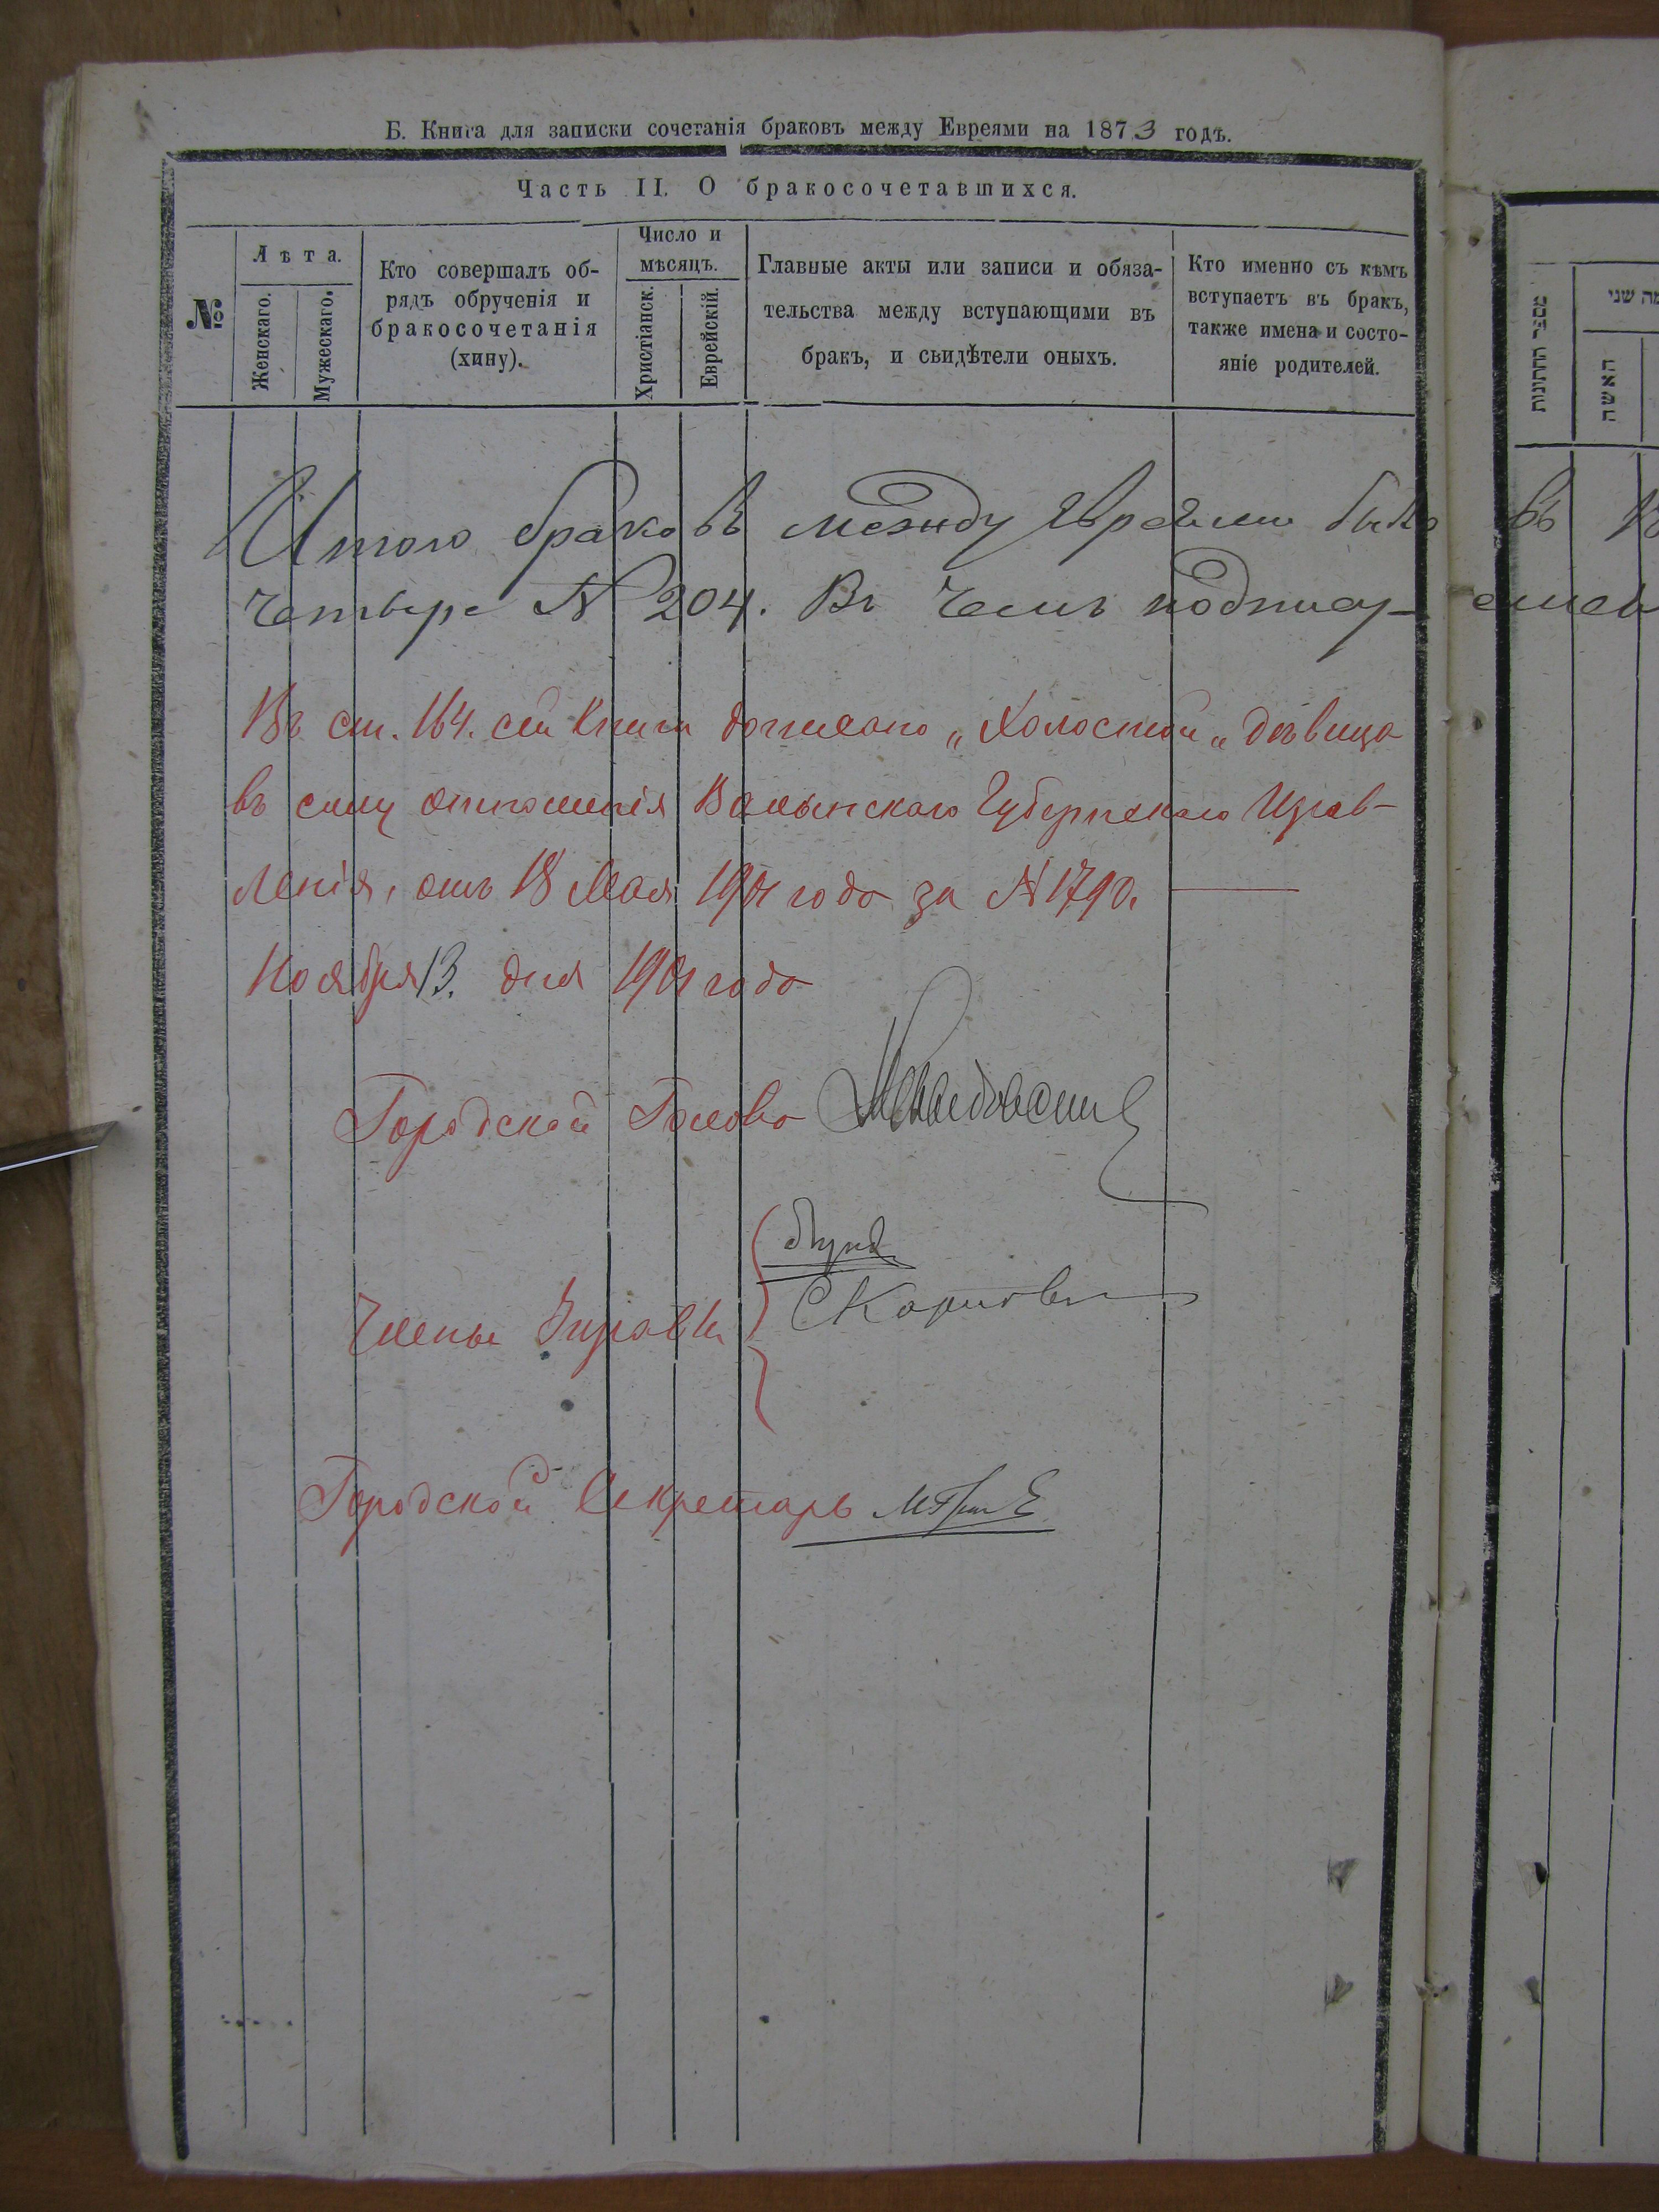 Б. Книга для записки сочетанія браковъ между Евреями на 1873 годъ.
Часть II. О бракосочетавшихся.
№
Лѣта.
Женскаго.
Мужескаго.
Кто совершалъ об-
рядъ обрученія и
бракосочетанія
(хипу).
Число и
мѣсяцъ.
Христіанск.
Еврейскій.
Главные акты или записи и обяза-
тельства между вступающими въ
бракъ, и свидѣтели оныхъ.
Кто именно съ кѣмъ
вступаетъ въ бракъ,
также имена и состо-
яніе родителей.
Итого браковъ между Евреями было въ
четыре № 204. Въ чемъ подпису-емся
Въ ст. 164. сей Книги дописано „Холостой„ дѣвица
въ силу отношенія Волынскаго Губернскаго Прав-
ленія, отъ 18 Мая 1901 года за № 1790.
Ноября 13. дня 1901 года
Городской Голова
Члены Управы
СКарпов
Городской Секретарь
מספר החתונות
מה שני
האשה